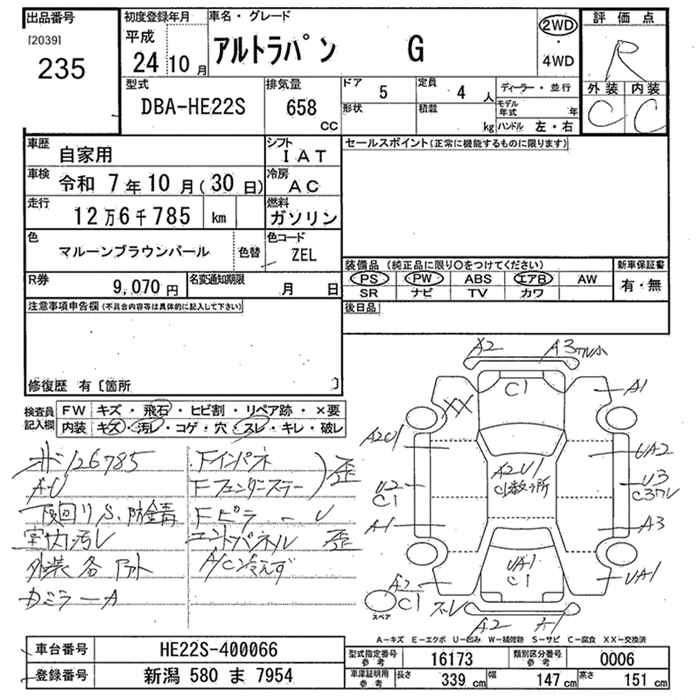 出品番号
[2039]
235
初度登録年月
平成
24 10 月
車名・グレード
アルトラパン G
2WD
・
4WD
評価点
R
外装 内装
C C
型式
DBA-HE22S
排気量
658 CC
ドア 5
形状
定員 4 人
積載 kg
ディーラー・並行
モデル年式 年
ハンドル 左・右
車歴
自家用
シフト
IAT
車検
令和 7年 10 月(30 日)
冷房
AC
走行
12万6千785 km
燃料
ガソリン
色
マルーンブラウンパール
色替
色コード
ZEL
R券
9,070 円
名変通知期限
月 日
セールスポイント(正常に機能するものに限ります)
装備品(純正品に限り○をつけてください)
PS PW ABS エアB AW
SR ナビ TV カワ
新車保証書
有・無
後日品
注意事項申告欄(不具合内容等は具体的に記入して下さい)
修復歴 有〔箇所 〕
検査員記入欄
FW キズ・飛石・ヒビ割・リペア跡・×要
内装 キズ・汚レ・コゲ・穴・スレ・キレ・破レ
126785
A-U
下回りS.防錆
室内汚レ
外装各
Fインパネ
Fピラー U
歪
エンドパネル 歪
A/C冷えず
A2
A3
C1
XX
A1
A2U1
UA2
A2U1
U2
C1
U3
A1
A3
UA1
C1
UA1
A2
C1
スペア
A2
A1
A-キズ E-エクボ U-凹み W-補修跡 S-サビ C-腐食 XX-交換済
車台番号
HE22S-400066
登録番号
新潟 580 ま 7954
型式指定番号 参考
16173
類別区分番号 参考
0006
車庫証明用 参考
長さ 339 cm
幅 147 cm
高さ 151 cm